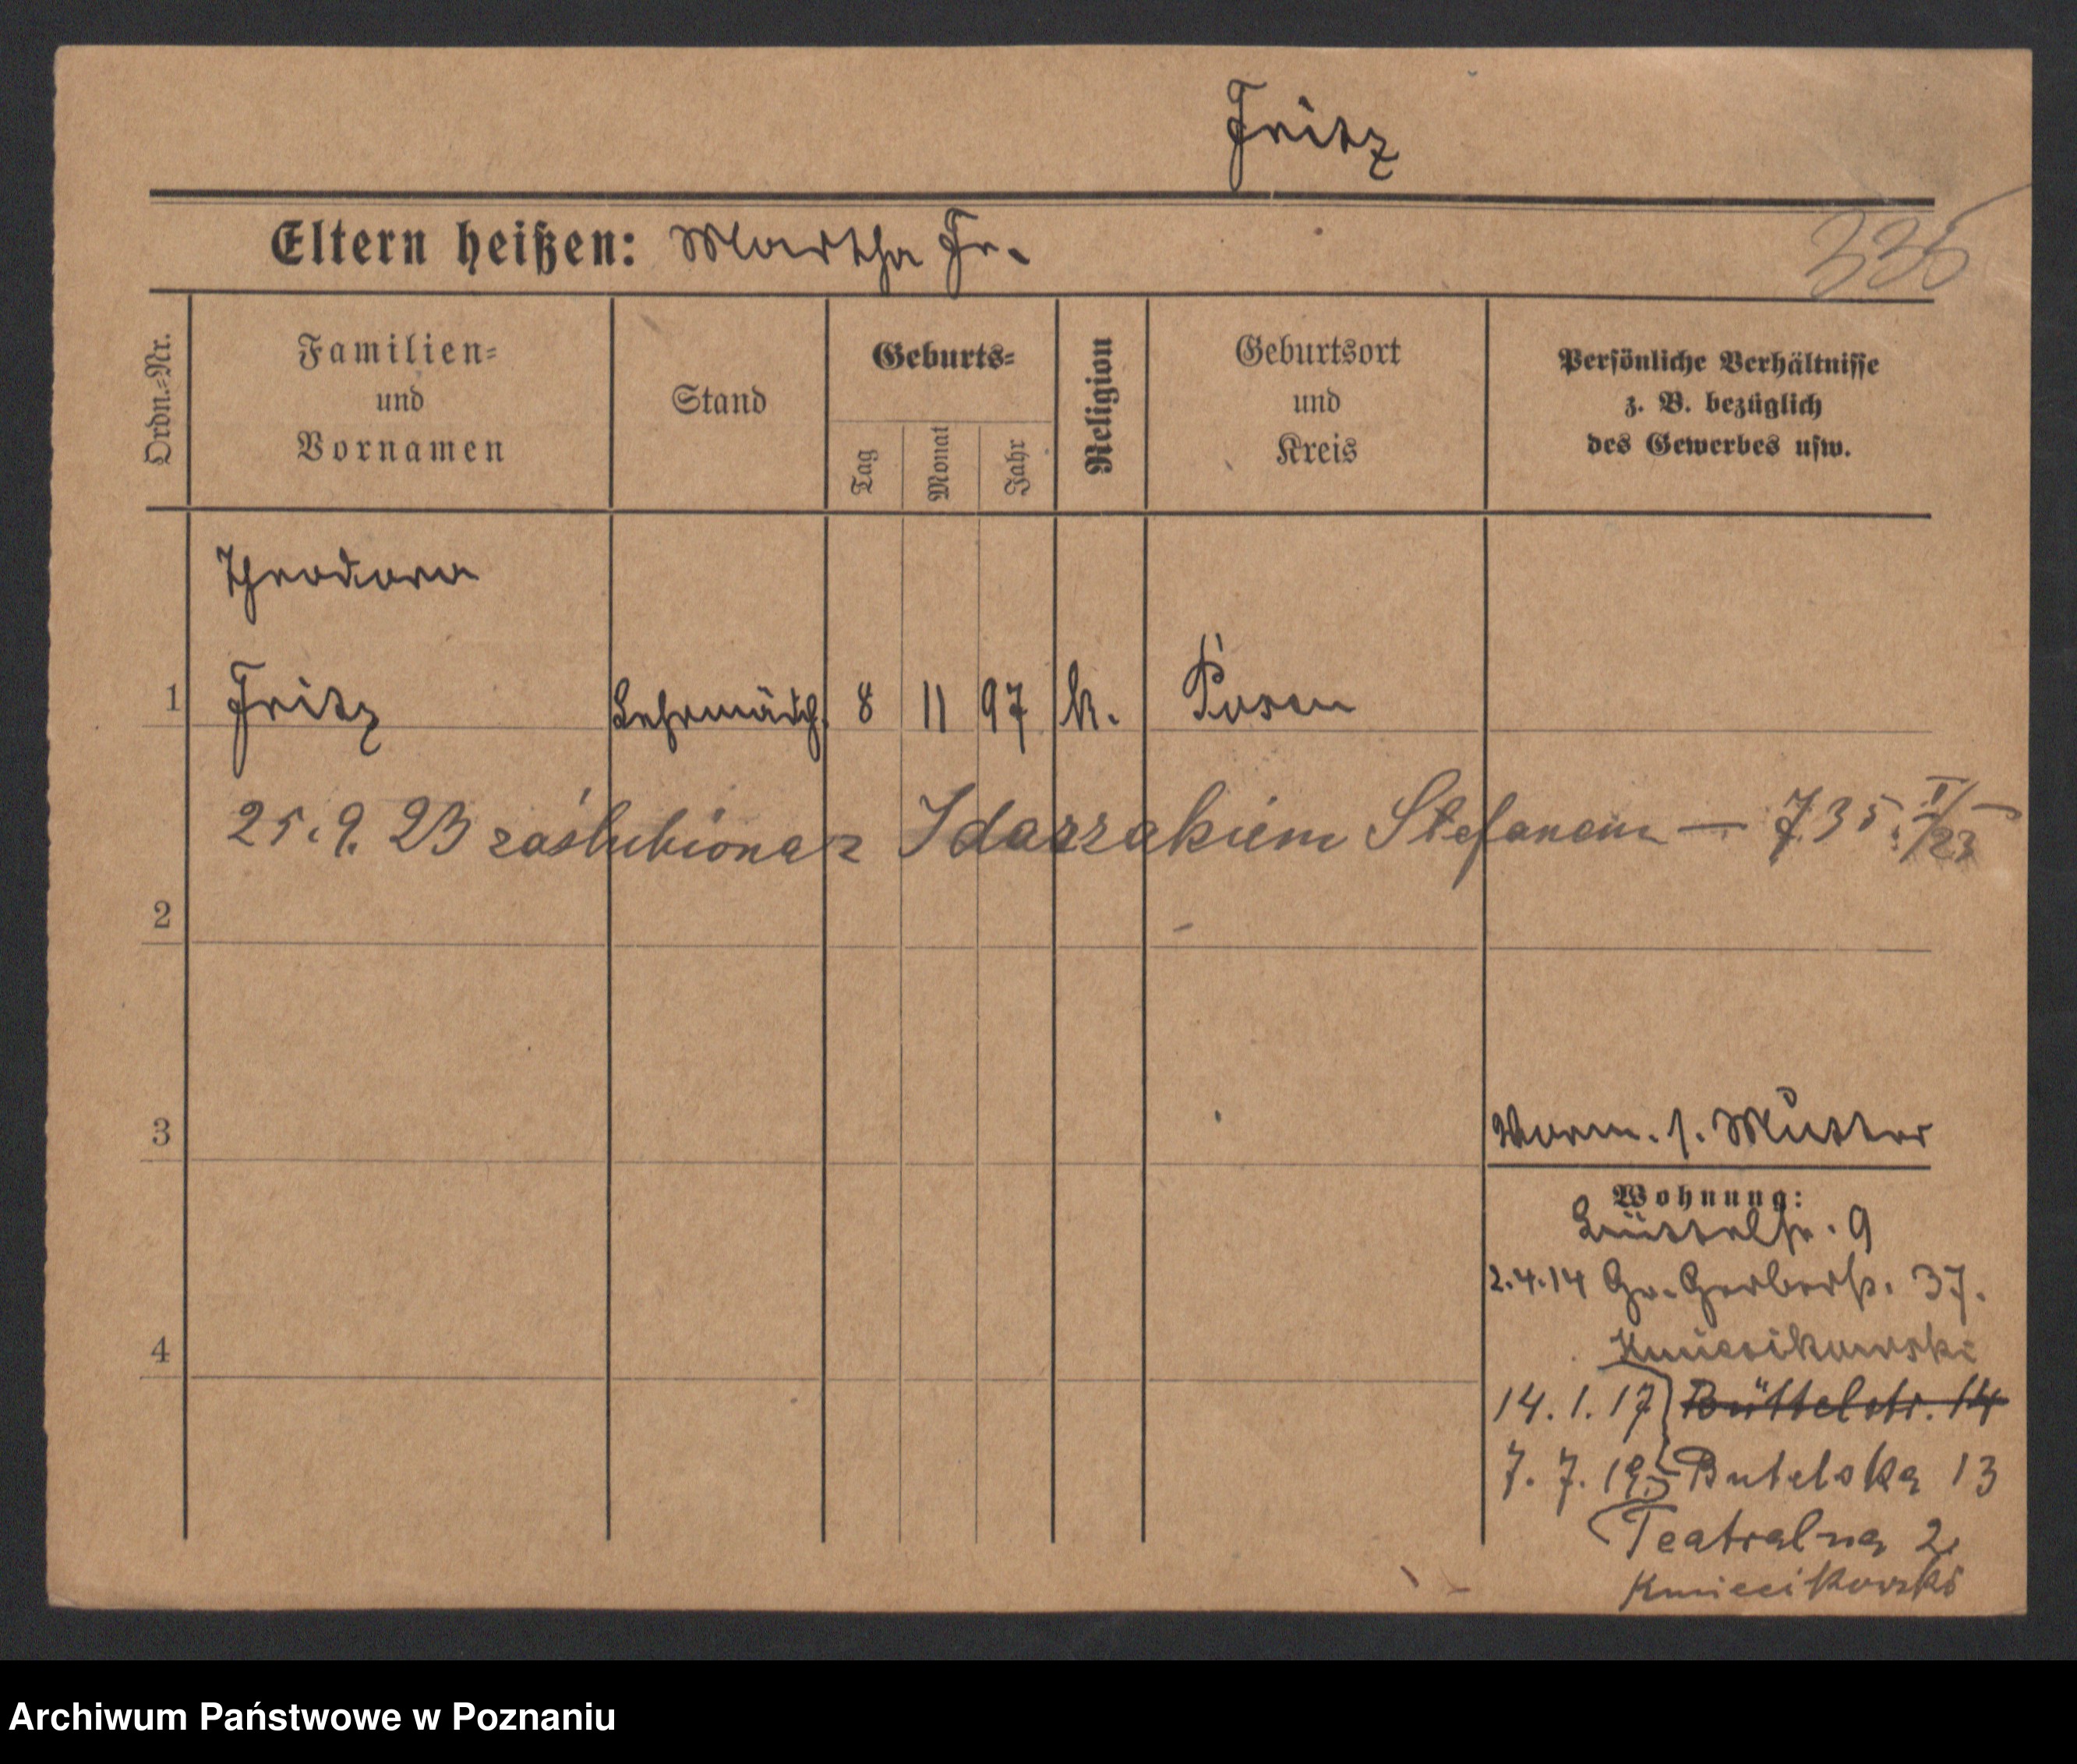 Fritz
Eltern heißen: Martha Fr.
335
Ordn.=Nr.
Familien=
und
Vornamen
Stand
Geburts=
Tag
Monat
Jahr
Religion
Geburtsort
und
Kreis
Persönliche Verhältnisse
z. B. bezüglich
des Gewerbes usw.
Theodora
1 Fritz Lehrmädch. 8 11 97 k. Posen
25.9.23 zaślubiona z Idaszakiem Stefanem — 735. I/23
2
3
Vorm. s. Mutter
Wohnung:
Büttelstr. 9
2.4.14 Gr. Gerberstr. 37.
4
Kmiecikowski
14.1.17 Büttelstr. 14
7. 7. 19 Butelska 13
Teatralna 2
Kmiecikowski
Archiwum Państwowe w Poznaniu